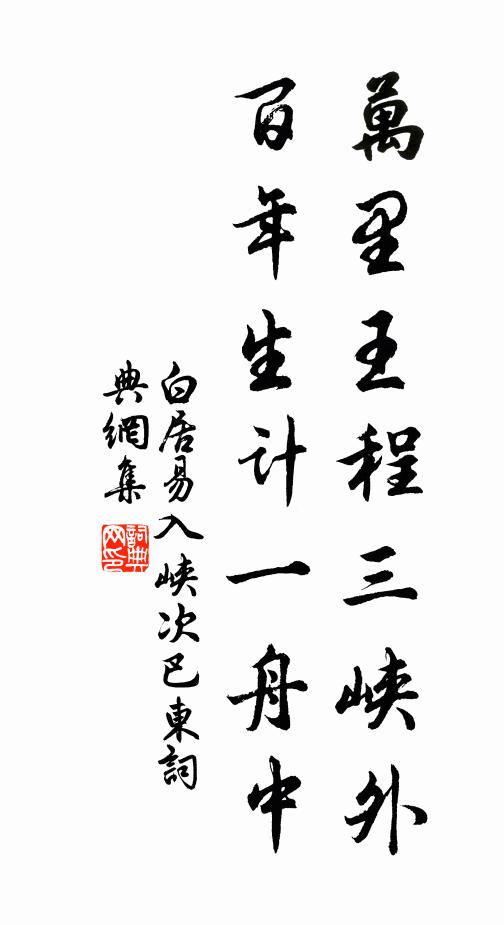 萬里王程三峽外
百年生計一舟中
白居易入峽次巴東詞
典網集
詞典網印